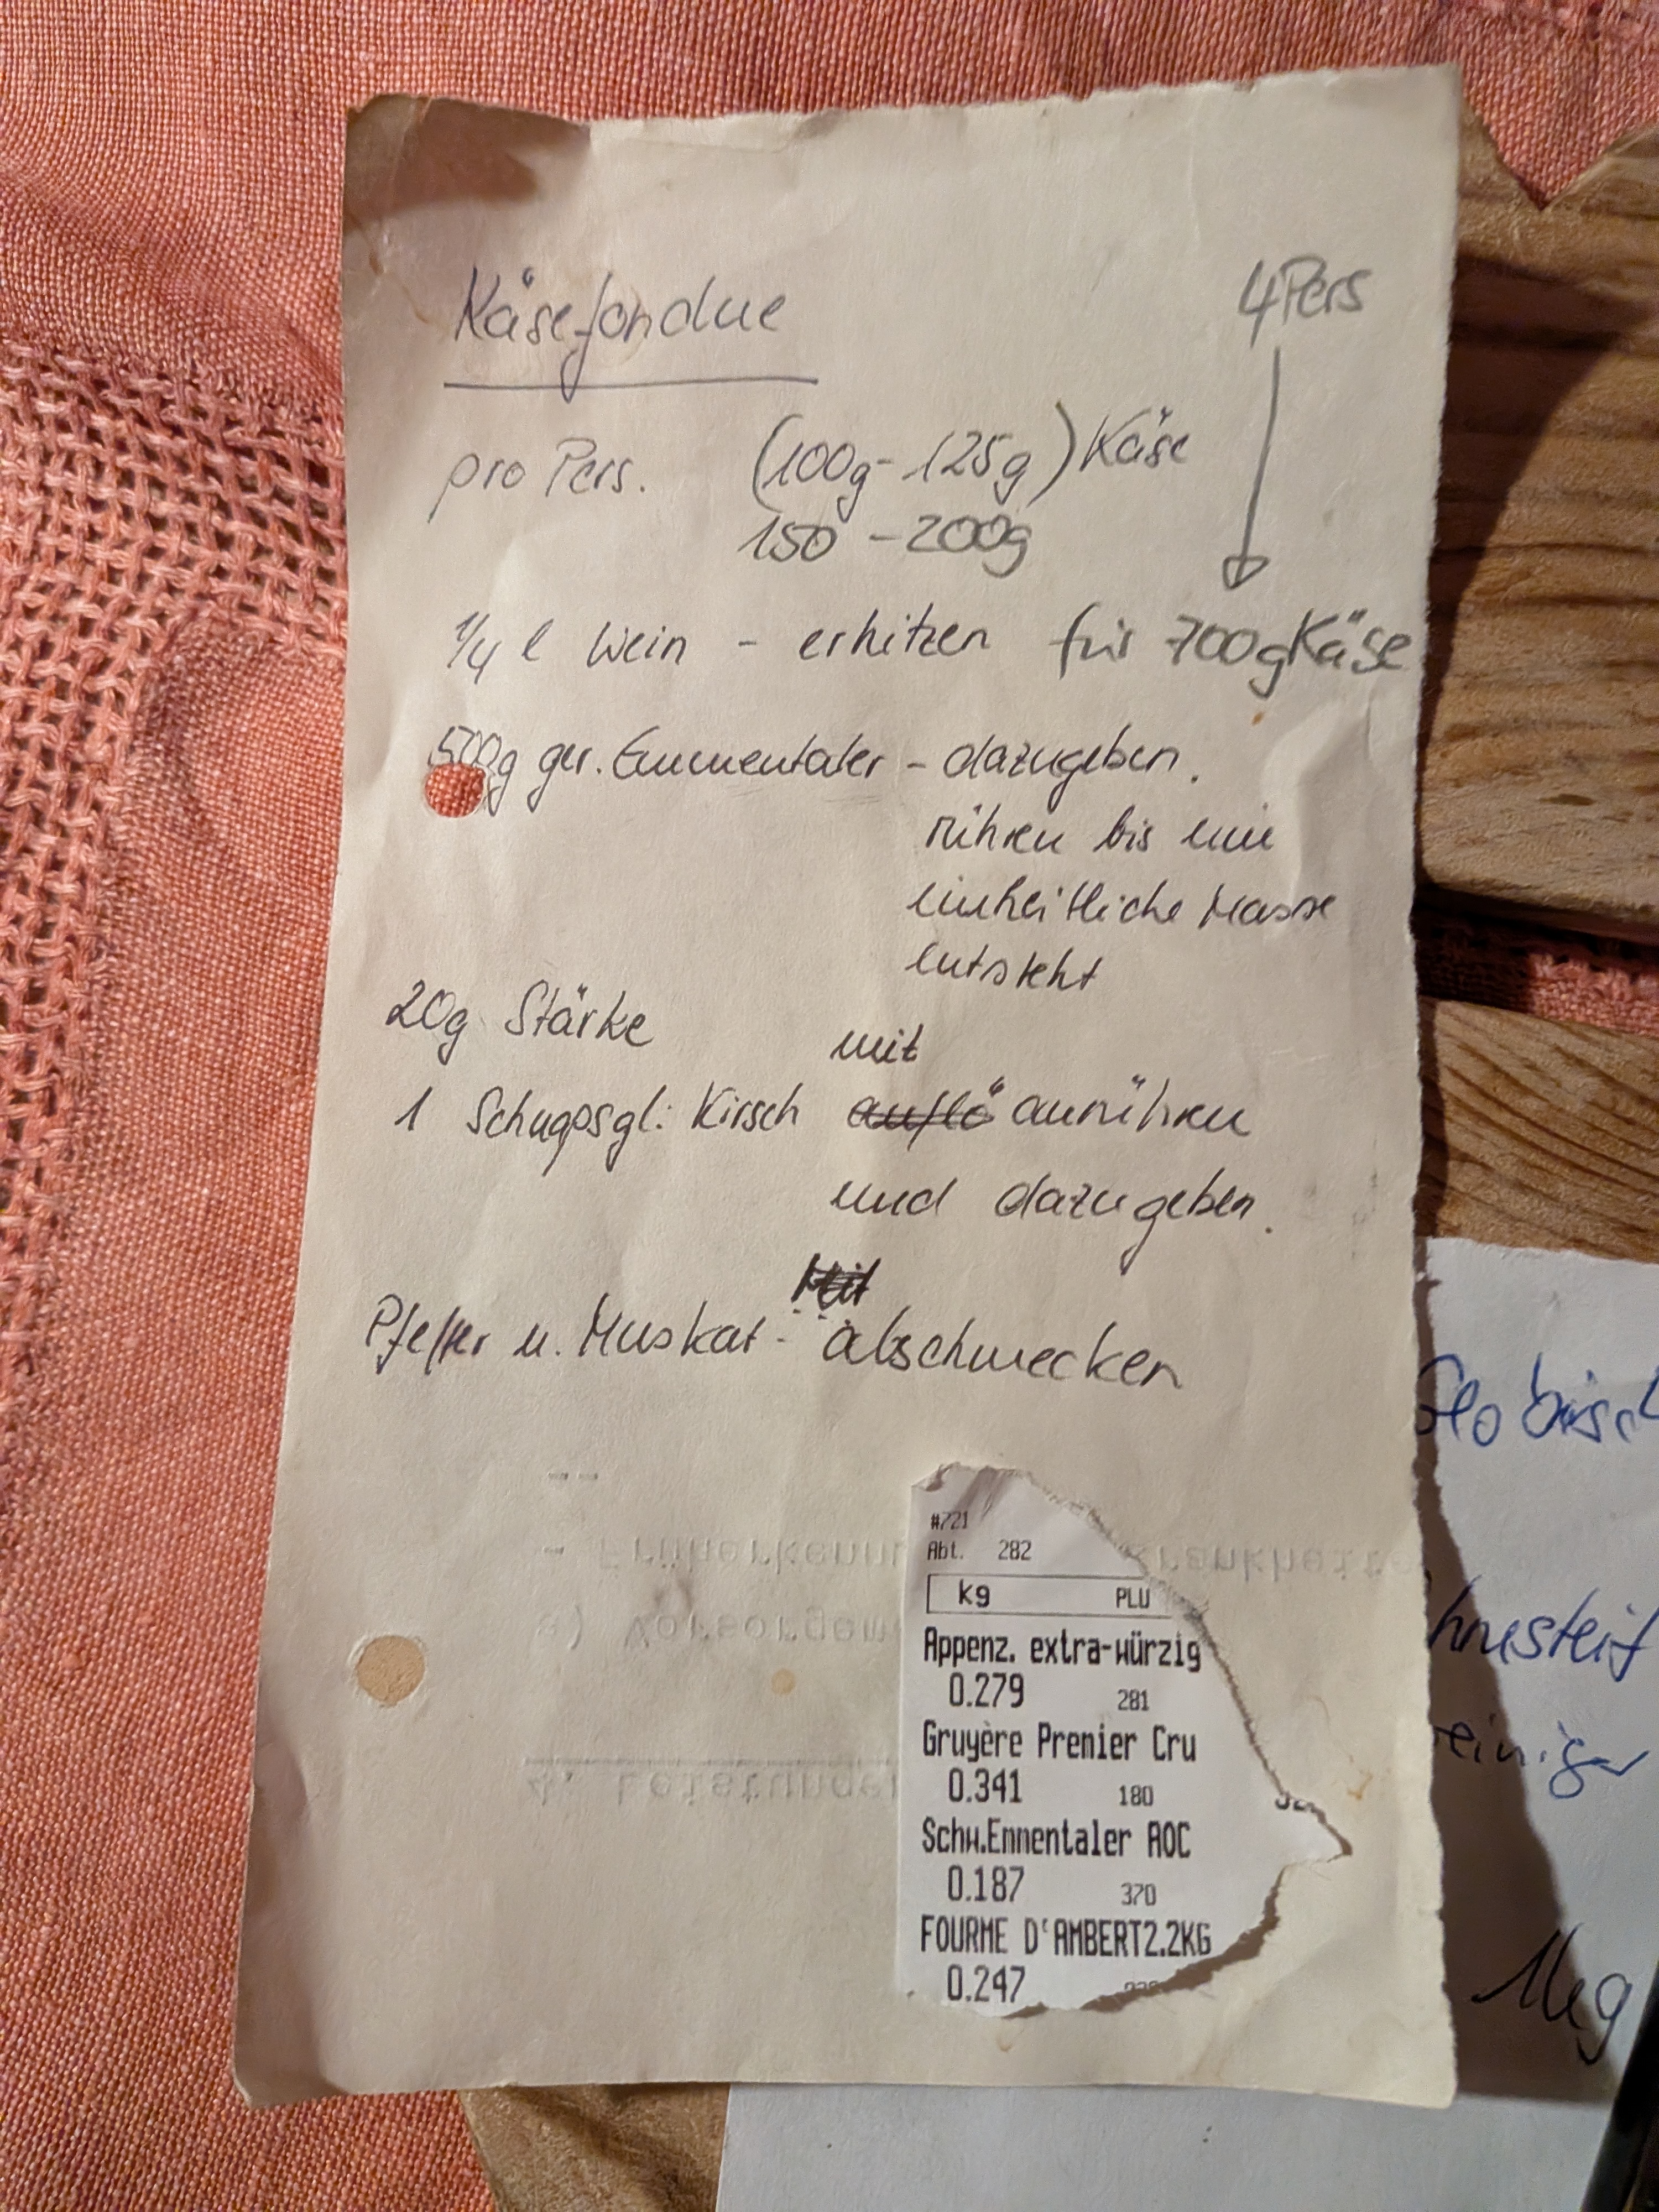 Käsefondue
4 Pers
pro Pers. (100g - 125g) Käse
150 - 200g
1/4 l Wein - erhitzen für 700g Käse
500g ger. Emmentaler - dazugeben.
rühren bis eine
einheitliche Masse
entsteht
20g Stärke
mit
1 Schnapsgl. Kirsch auflö anrühren
und dazugeben.
Mit
Pfeffer u. Muskat - abschmecken
#721
Abt. 282
kg PLU
Appenz. extra-würzig
0.279 281
Gruyère Premier Cru
0.341 180
Schw.Emmentaler AOC
0.187 370
FOURME D'AMBERT2.2KG
0.247
1kg